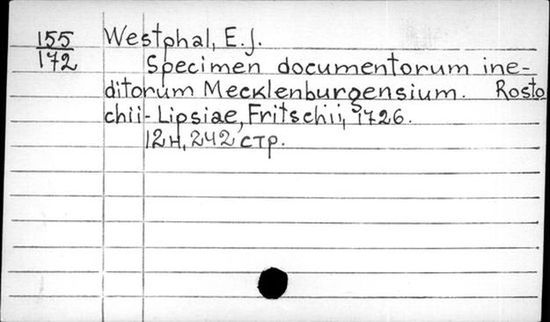 155
172
Westphal, E. J.
Specimen documentorum ine-
ditorum Mecklenburgensium. Rosto
chii-Lipsiae, Fritschii, 1726.
12н, 242 стр.